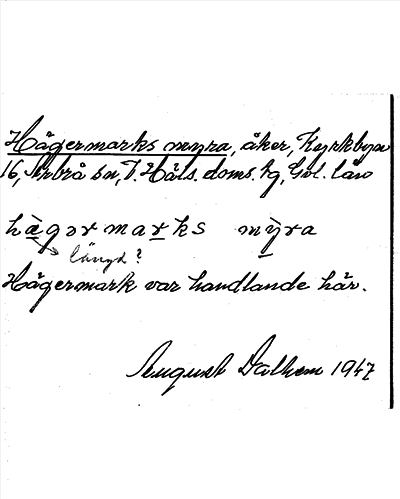 Hägermarks myra, åker, Kyrkbyn
16, Arbrå sn, V. Häls. doms. hg, Gvl. län
hägərmarks mỳra
längd?
Hägermark var handlande här.
August Dalhem 1947